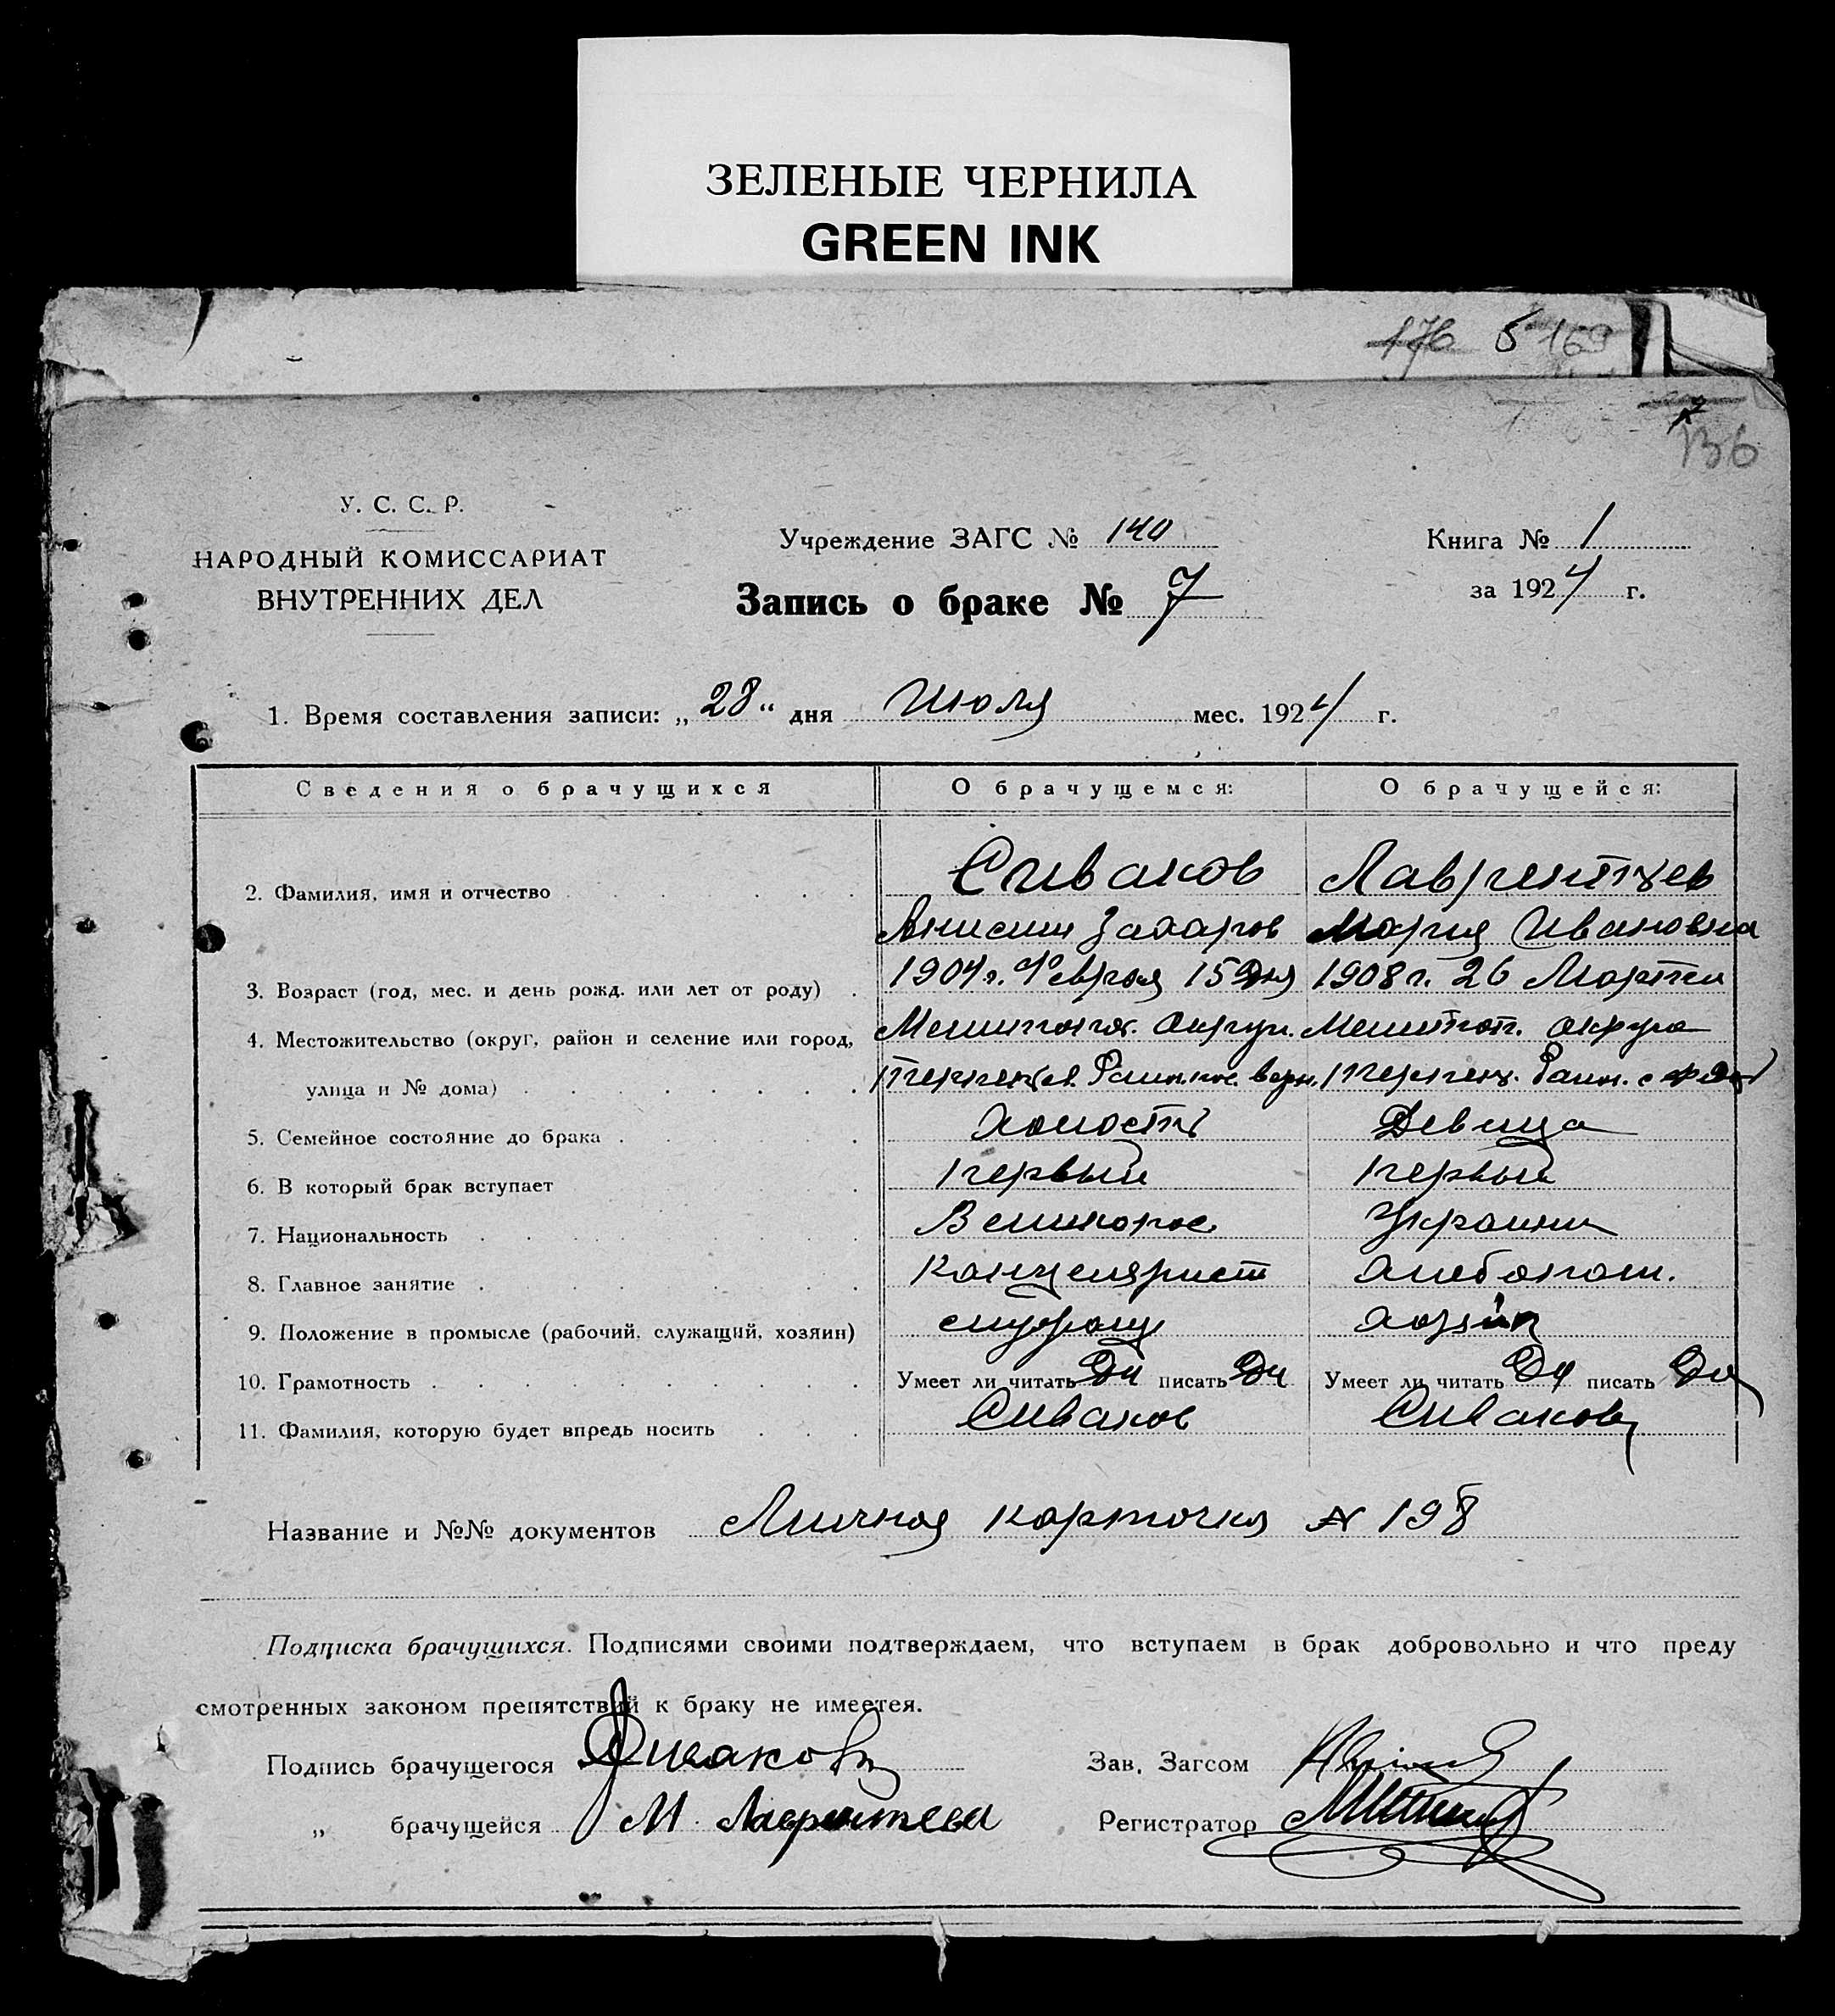 ЗЕЛЕНЫЕ ЧЕРНИЛА
GREEN INK
176 5 169
136
У. С. С. Р.
НАРОДНЫЙ КОМИССАРИАТ
ВНУТРЕННИХ ДЕЛ
Учреждение ЗАГС № 140
Запись о браке № 7
Книга № 1
за 1924 г.
1. Время составления записи: „28" дня Июля мес. 1924 г.
Сведения о брачущихся О брачущемся: О брачущейся:
2. Фамилия, имя и отчество Сиваков Лаврентьев
Анисим Захаров Мария Ивановна
3. Возраст (год, мес. и день рожд. или лет от роду) 1904 г. Февраля 15 дня 1908 г. 26 Марта
4. Местожительство (округ, район и селение или город, Мелитопол. Округ. Мелитоп. округа
улица и № дома)
5. Семейное состояние до брака Холост Девица
6. В который брак вступает первый первый
7. Национальность Великорос Украин
8. Главное занятие Канцелярист Хлебопаш.
9. Положение в промысле (рабочий, служащий, хозяин) служащ хозяин
10. Грамотность Умеет ли читать Да писать Да Умеет ли читать Да писать Да
11. Фамилия, которую будет впредь носить Сиваков Сивакова
Название и №№ документов Личная карточка № 198
Подписка брачущихся. Подписями своими подтверждаем, что вступаем в брак добровольно и что преду
смотренных законом препятствий к браку не имеетея.
Подпись брачущегося Сиваков
Зав. Загсом
„ брачущейся М. Лаврентева
Регистратор